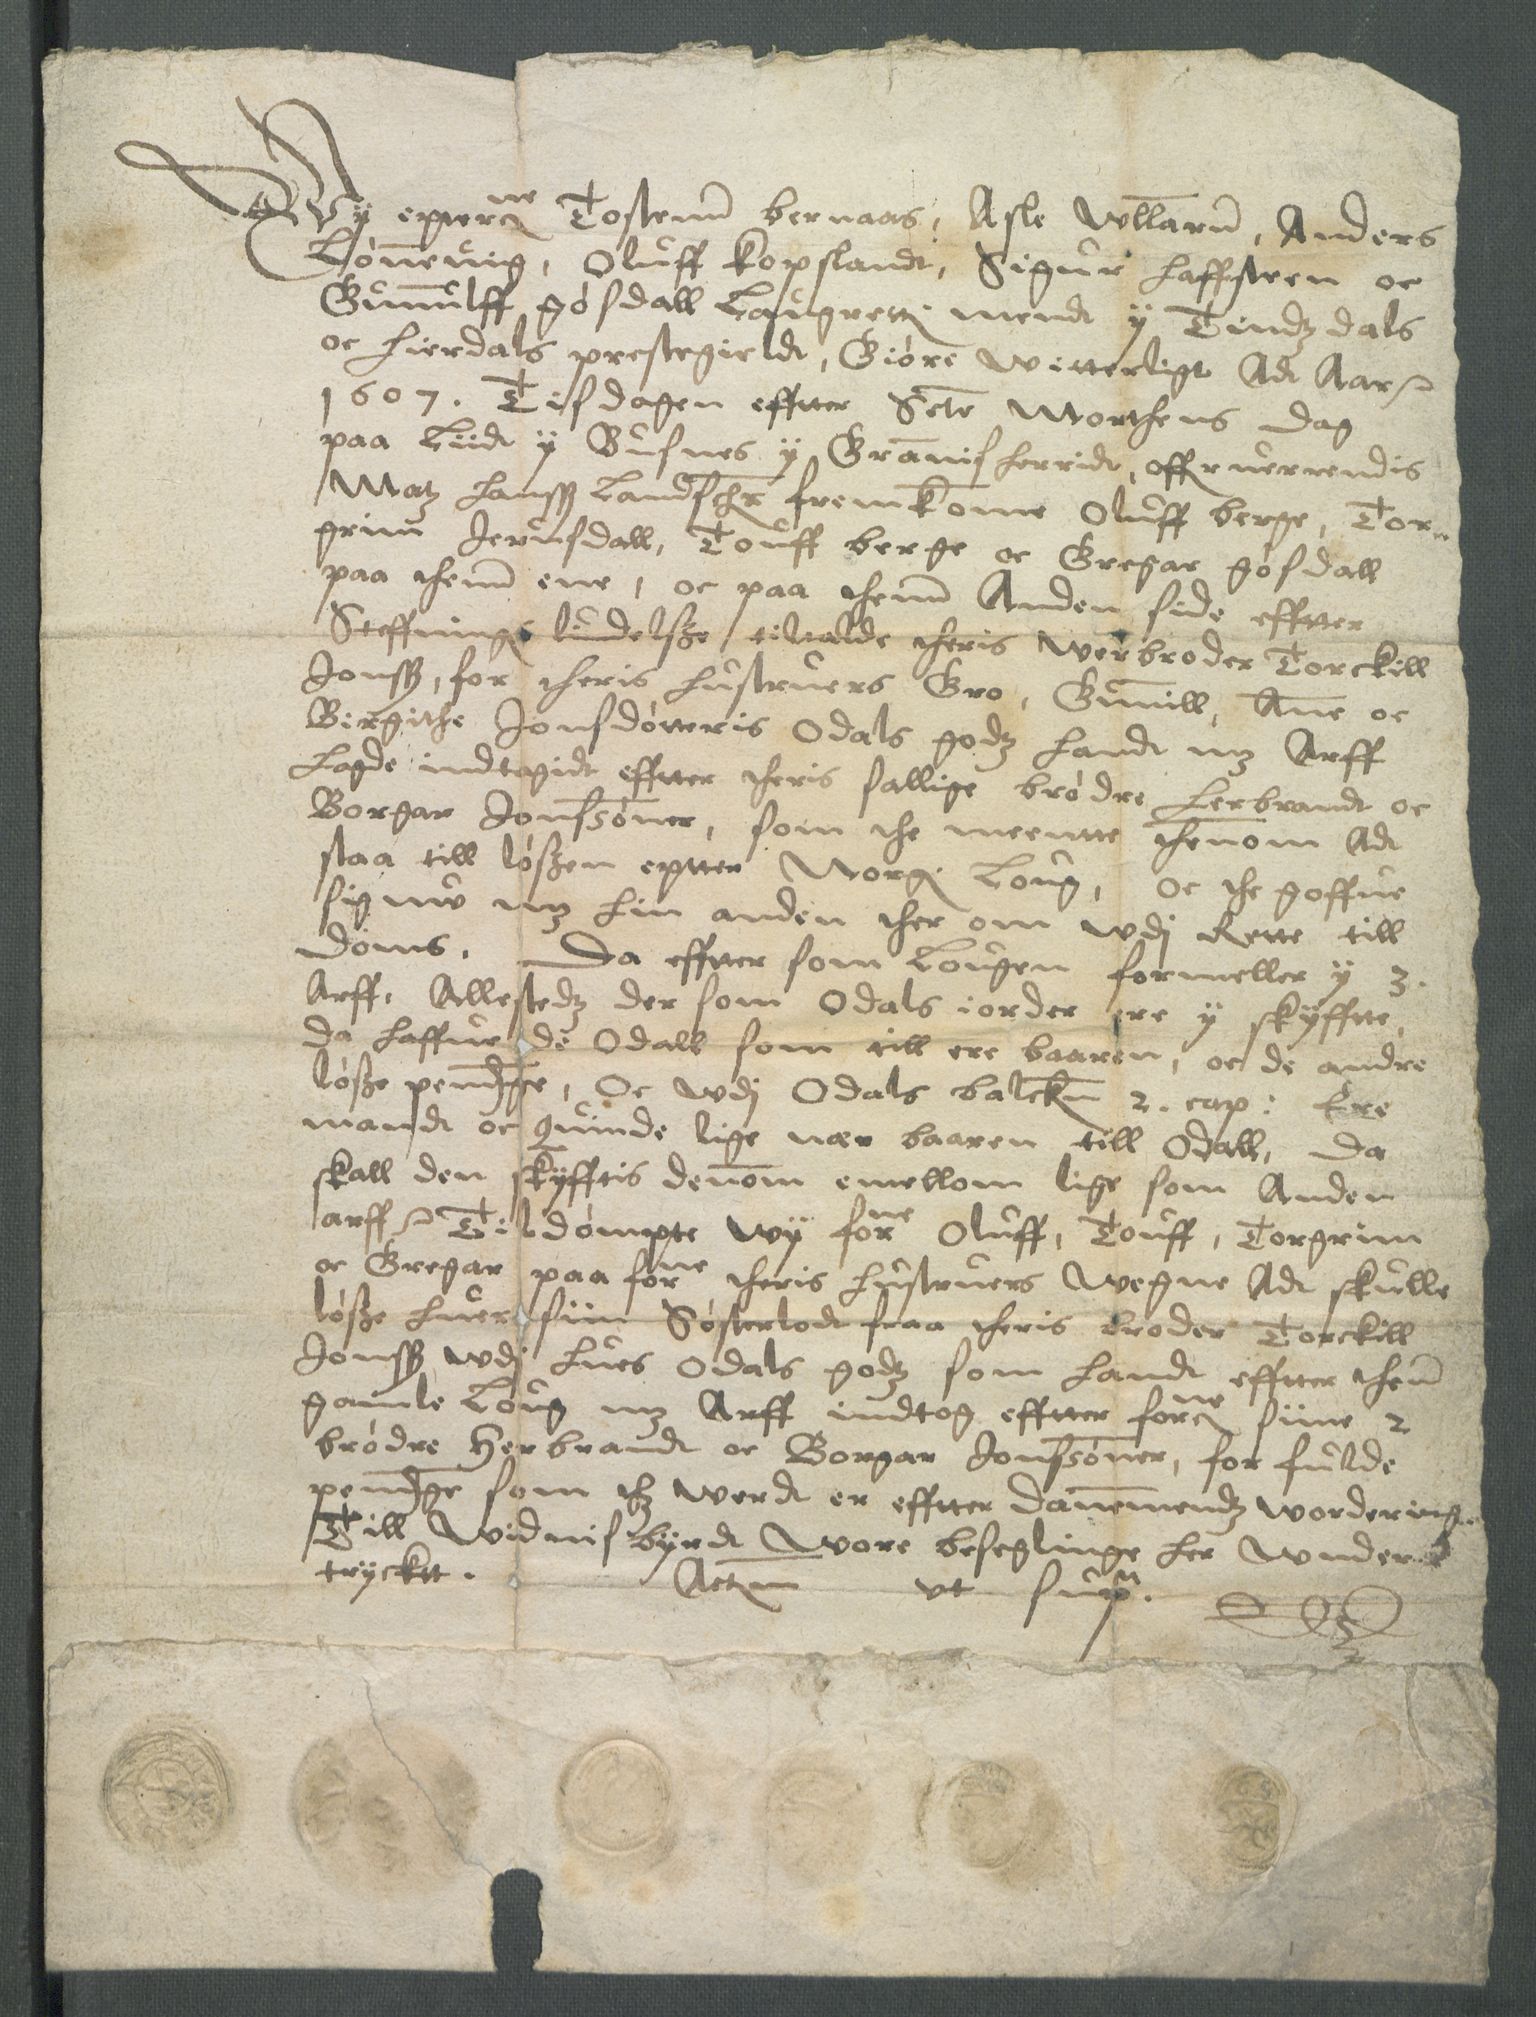 Wy epterne Tostenn bernaas, Asle Wllarn, Anders
Lönneuig, Oluff Kopslandt, Sigur Haffsteen oc
Gunnulff gösdall Laugrettis mendt ÿ Tindtz dals
oc Hierdals prestegieldt, Giöre witterligt Adt Aar
1607. Tisdagen effter Scte Morthens dag
paa Liidt ÿ Busnes ÿ Grannisherridt, offueruerrendis
Matz Hanssß Landschr fremkome Oluff berge, Tor-
grim Jerunsdall, Touff berge oc Gregar gösdall
paa thenn ene, oc paa thenn Anden side effter
Steffnings lundelsze tiltalde theris Werbroder Torckill
Jonssß, for theris Hustruers Gro, Gunnill, Anne oc
Birgithe Jonsdötteris Odals godtz Handt mz Arff
Hagde indtagidt effter theris sallige brödre Herbrandt oc
Borgar Jonssöner, som the meentte thenom Adt
staa till lößen eptter Norgis Loug, oc the goffue
sig nu mz hin anden ther om wdj Rette till
doms. Da effter som Lougen formeller ÿ 3.
Arff. Allestedtz der som Odals iorder ere ÿ skÿffte,
da haffue de Odall som till ere baaren, oc de andre
löße penndinge, Oc wdj Odals balcken 2. cap: Ere
mandt oc quinde lige nær baaren till Odall, da
skall den skÿfftis dennom emellom lige som Anden
arff Tildömpte wÿ forne Oluff, Touff, Torgrim
oc Gregar paa forne theris Hustruers Wegne Adt skulle
löße huer siin Sösterlodt fraa theris broder Torckill
Jonssß wdj hues Odals godtz som handt effter thenn
gamle Loug mz Arff indtog effter forne siine 2
brödre Herbrandt oc Borgar Jonssöner, for fulde
pendinge som thz werdt er effter dannemendtz wordering.
Till Widnisbÿrdt Wore beseglinge her Wnder
tryckt. Actum ut supra.